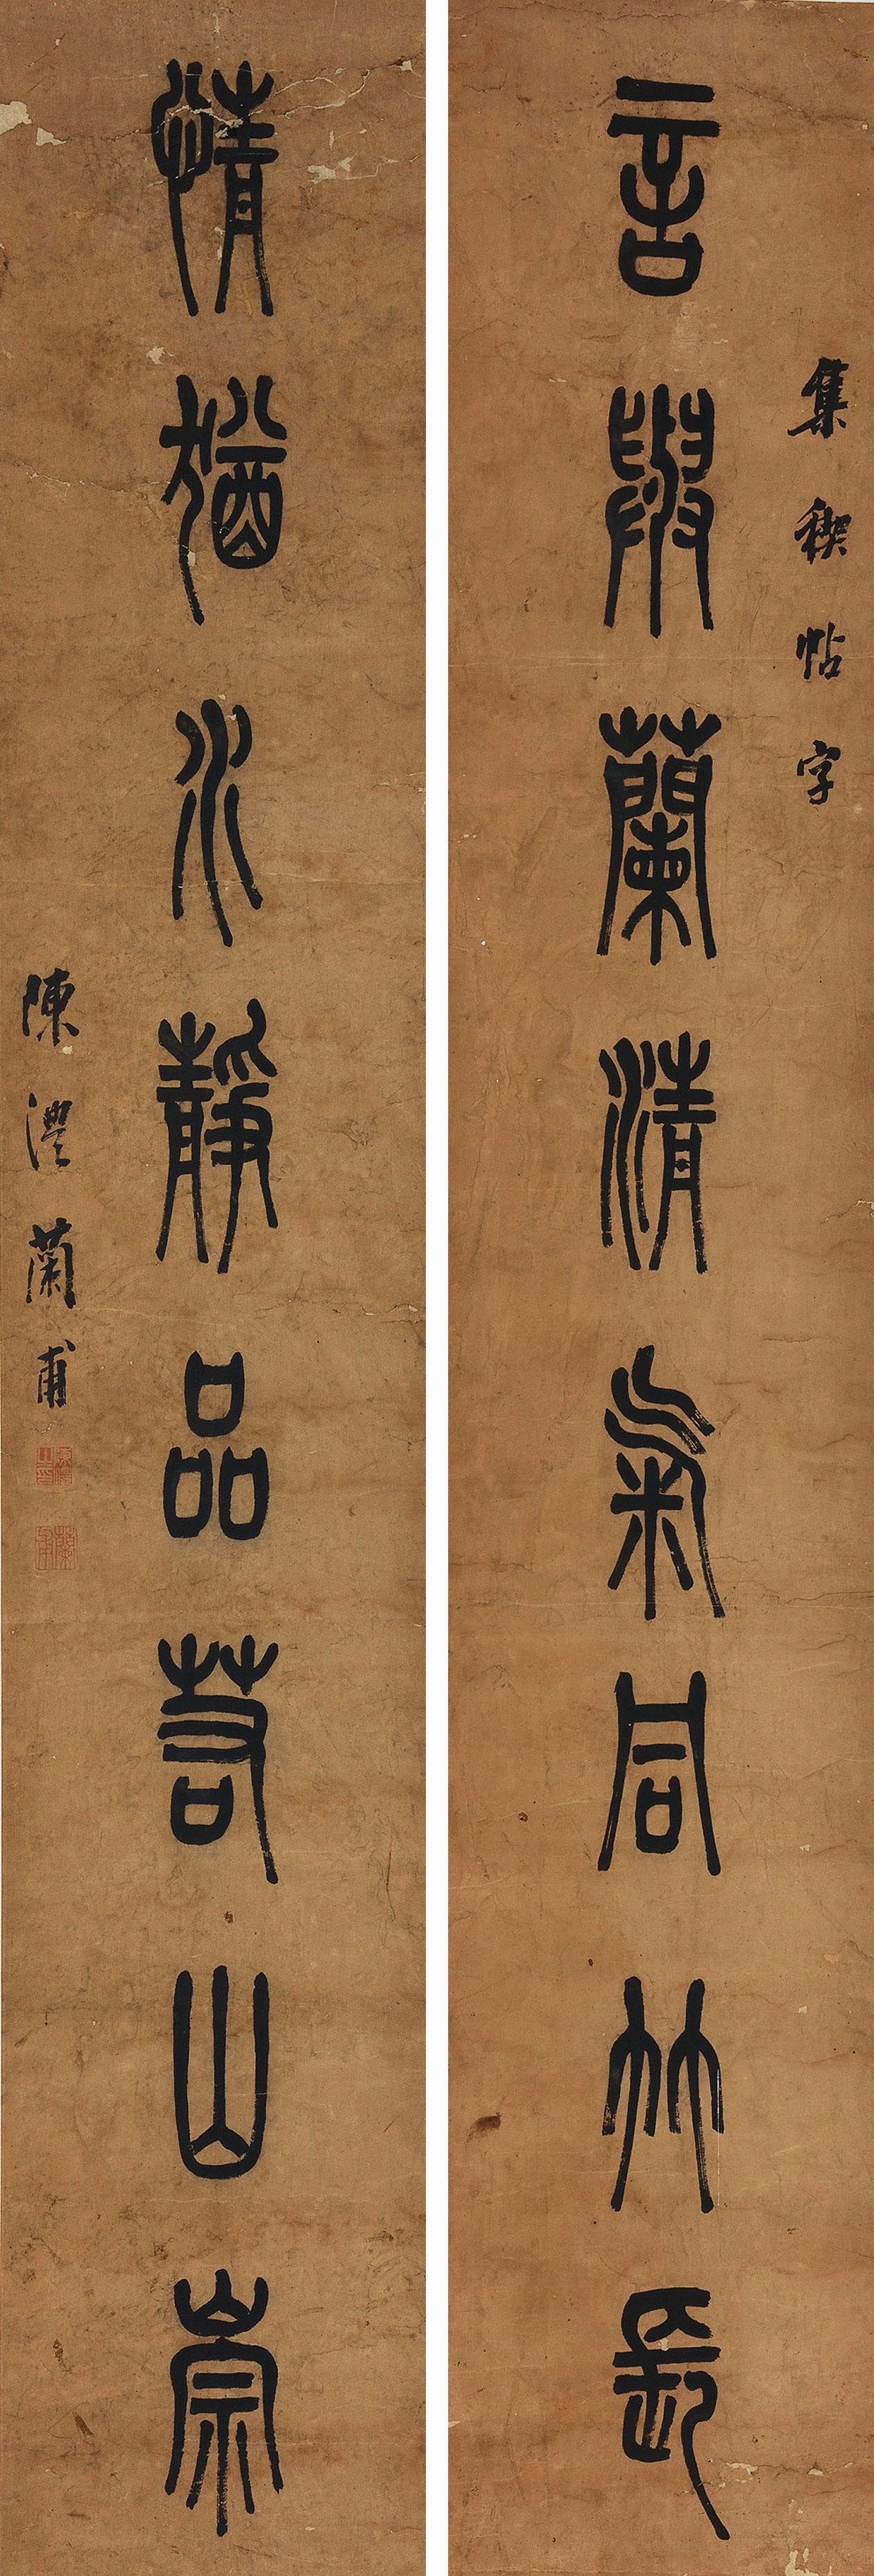 集禊帖字
言與蘭清氣同竹長
情猶水靜品若山崇
陳澧蘭甫
陳澧之印
蘭甫